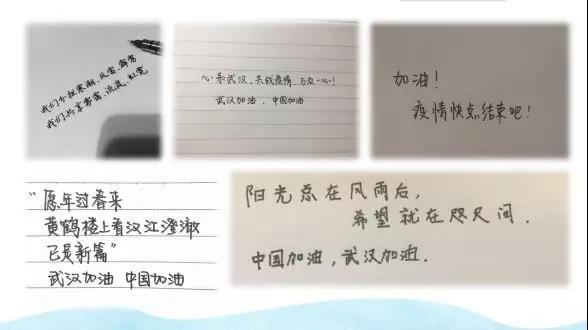 我们分担寒潮、风雷、霹雳
我们共享雾霭、流岚、虹霓
心系武汉，共战疫情，万众一心！
武汉加油，中国加油
加油！
疫情快点结束吧！
“愿年过春来
黄鹤楼上看汉江澄澈
已是新篇”
武汉加油 中国加油
阳光总在风雨后，
希望就在咫尺间.
中国加油，武汉加油.